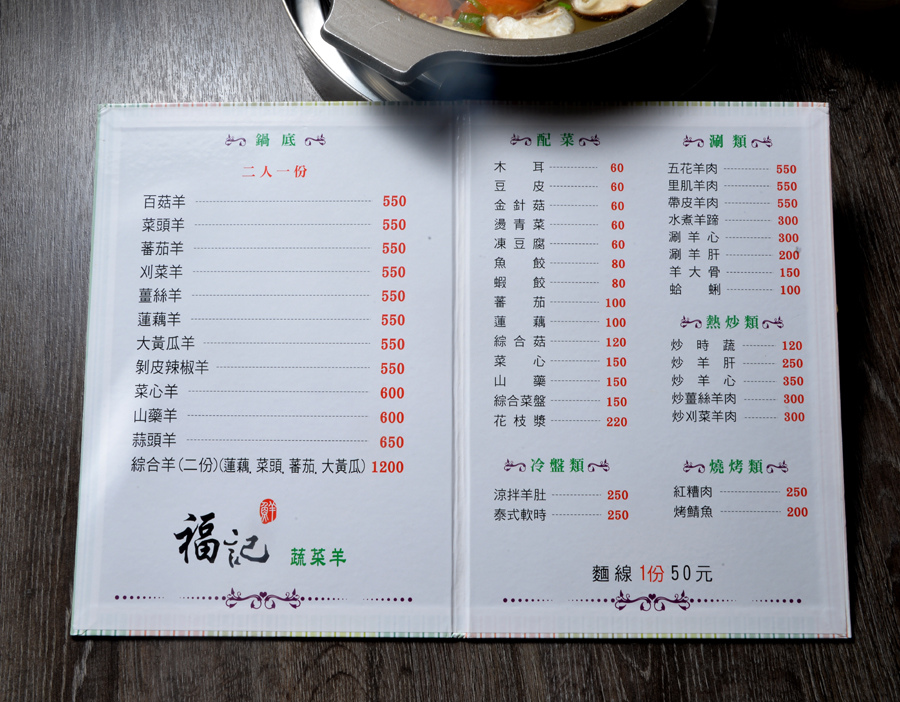 鍋底
二人一份
百菇羊 550
菜頭羊 550
蕃茄羊 550
刈菜羊 550
薑絲羊 550
蓮藕羊 550
大黃瓜羊 550
剝皮辣椒羊 550
菜心羊 600
山藥羊 600
蒜頭羊 650
綜合羊(二份)(蓮藕, 菜頭, 蕃茄, 大黃瓜) 1200
鮮
福記 蔬菜羊
配菜
木耳 60
豆皮 60
金針菇 60
燙青菜 60
凍豆腐 60
魚餃 80
蝦餃 80
蕃茄 100
蓮藕 100
綜合菇 120
菜心 150
山藥 150
綜合菜盤 150
花枝漿 220
冷盤類
涼拌羊肚 250
泰式軟時 250
涮類
五花羊肉 550
里肌羊肉 550
帶皮羊肉 550
水煮羊蹄 300
涮羊心 300
涮羊肝 200
羊大骨 150
蛤蜊 100
熱炒類
炒時蔬 120
炒羊肝 250
炒羊心 350
炒薑絲羊肉 300
炒刈菜羊肉 300
燒烤類
紅糟肉 250
烤鯖魚 200
麵線 1份 50元